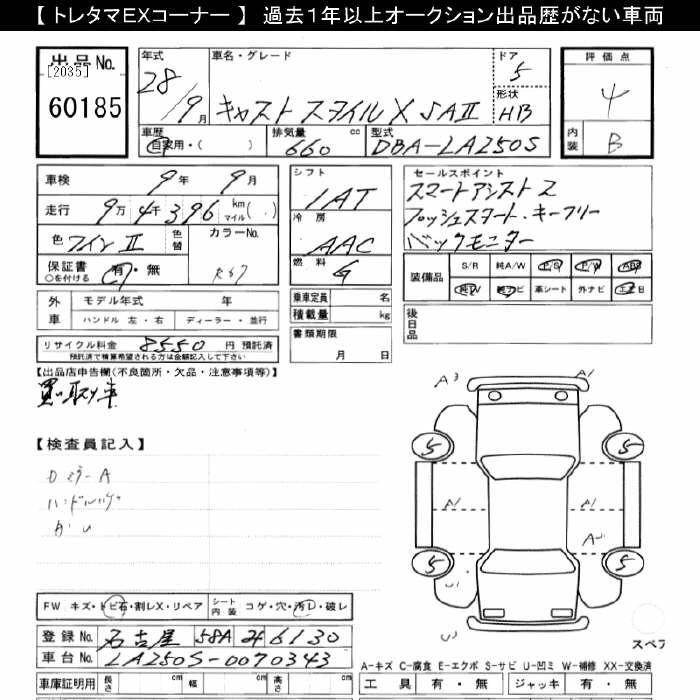 【 トレタマEXコーナー 】 過去1年以上オークション出品歴がない車両
出品No.
[2035]
60185
年式 28/9月
車名・グレード キャスト スタイルX SAⅡ
ドア 5
形状 HB
評価点 4
内装 B
車歴 自家用・( )
排気量 660 cc
型式 DBA-LA250S
車検 9年 9月
走行 9万4千396 km マイル( )
色 ワインⅡ 色替
カラーNo. R67
保証書 ○を付ける 有・無
シフト IAT
冷房 AAC
燃料 G
セールスポイント
スマートアシスト2
プッシュスタート・キーフリー
バックモニター
装備品 S/R 純A/W P/S P/W ABS
純TV 純ナビ 革シート 外ナビ エアB
外車 モデル年式 年
ハンドル 左・右 ディーラー・並行
乗車定員 名
積載量 kg
後日品
リサイクル料金 8550 円 預託済
預託済で積算希望される方は金額記入して下さい
書類期限 月 日
【出品店申告欄(不良箇所・欠品・注意事項等)】
買い取り車
【検査員記入】
DミラーA
A3 A1
5 5
A1 A1
5 5
U
FW キズ・トビ石・割レX・リペア シート内装 コゲ・穴・汚レ・破レ
登録No. 名古屋 58A み 6130
車台No. LA250S-0070343
スペア
A-キズ C-腐食 E-エクボ S-サビ U-凹ミ W-補修 XX-交換済
車庫証明用 長さ cm 幅 cm 高さ cm
工具 有・無 ジャッキ 有・無